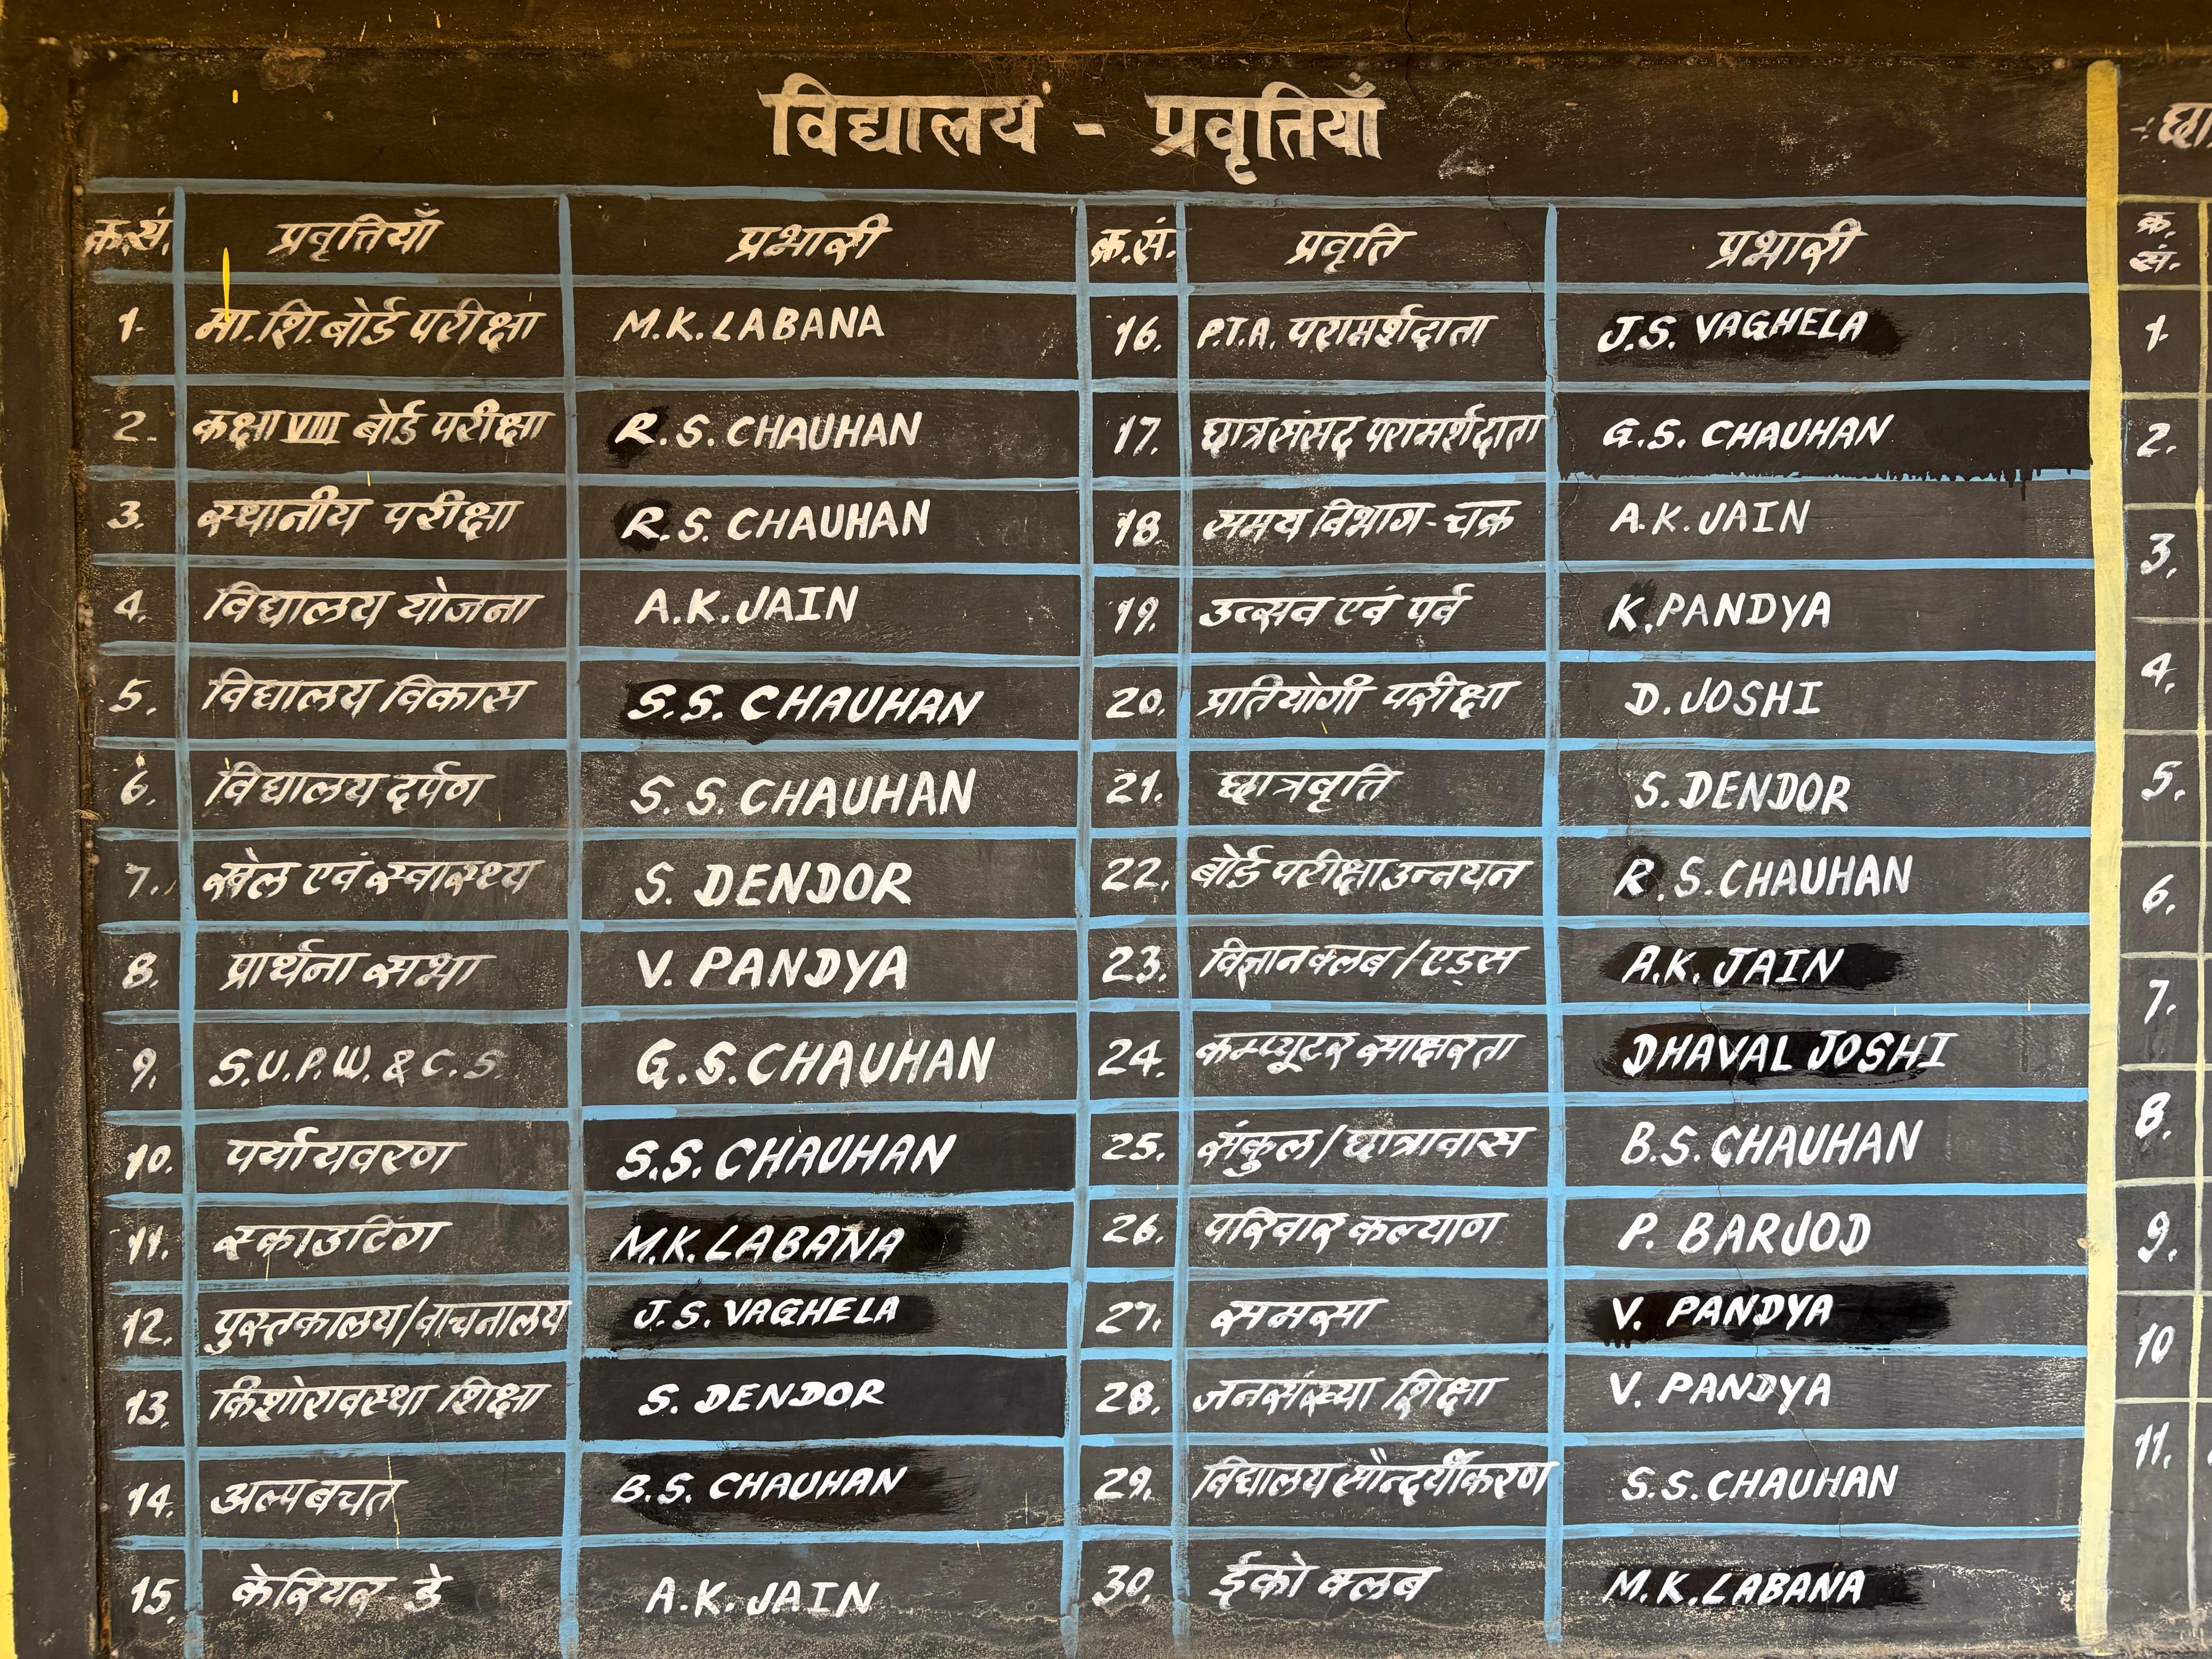 विद्यालय - प्रवृत्तियाँ
क्र.सं. प्रवृत्तियाँ प्रभारी क्र.सं. प्रवृति प्रभारी
1. मा.शि.बोर्ड परीक्षा M.K.LABANA 16. P.T.A. परामर्शदाता J.S. VAGHELA
2. कक्षा VIII बोर्ड परीक्षा R.S. CHAUHAN 17. छात्रसंसद परामर्शदाता G.S. CHAUHAN
3. स्थानीय परीक्षा R.S. CHAUHAN 18. समय विभाग-चक्र A.K.JAIN
4. विद्यालय योजना A.K.JAIN 19. उत्सव एवं पर्व K.PANDYA
5. विद्यालय विकास S.S. CHAUHAN 20. प्रतियोगी परीक्षा D.JOSHI
6. विद्यालय दर्पण S.S.CHAUHAN 21. छात्रवृत्ति S.DENDOR
7. खेल एवं स्वास्थ्य S. DENDOR 22. बोर्ड परीक्षा उन्नयन R.S.CHAUHAN
8. प्रार्थना सभा V. PANDYA 23. विज्ञान क्लब/एड्स A.K. JAIN
9. S.U.P.W. & C.S. G.S.CHAUHAN 24. कम्प्यूटर साक्षरता DHAVAL JOSHI
10. पर्यायवरण S.S. CHAUHAN 25. संकुल/छात्रावास B.S.CHAUHAN
11. स्काउटिंग M.K.LABANA 26. परिवार कल्याण P. BARJOD
12. पुस्तकालय/वाचनालय J.S. VAGHELA 27. समसा V. PANDYA
13. किशोरावस्था शिक्षा S. DENDOR 28. जनसंख्या शिक्षा V. PANDYA
14. अल्पबचत B.S. CHAUHAN 29. विद्यालय सौन्दर्यीकरण S.S.CHAUHAN
15. केरियर डे A.K.JAIN 30. ईको क्लब M.K.LABANA
क्र.
सं.
1.
2.
3.
4.
5.
6.
7.
8.
9.
10
11.